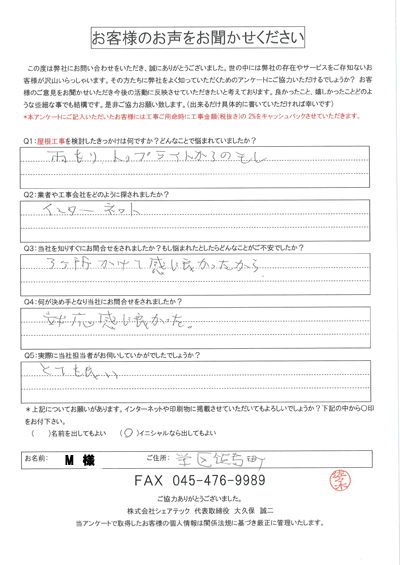 お客様のお声をお聞かせください
この度は弊社にお問い合わせをいただき、誠にありがとうございました。世の中には弊社の存在やサービスをご存知ないお
客様が沢山いらっしゃいます。その方たちに弊社をよく知っていただくためのアンケートにご協力いただけるでしょうか？ お客
様のご意見をお聞かせいただき今後の活動に反映させていただきたいと考えております。良かったこと、嬉しかったことどのよ
うな些細な事でも結構です。是非ご協力お願い致します。（出来るだけ具体的に書いていただければ幸いです）
*本アンケートにご記入いただいたお客様には工事ご用命時に工事金額(税抜き)の 2%をキャッシュバックさせていただきます。
Q1:屋根工事を検討したきっかけは何ですか？どんなことで悩まれていましたか？
雨もり トップライトからのもし
Q2:業者や工事会社をどのように探されましたか？
インターネット
Q3:当社を知りすぐにお問合せをされましたか？もし悩まれたとしたらどんなことがご不安でしたか？
3ヶ所かけて感じ良かったから
Q4:何が決め手となり当社にお問合せをされましたか？
対応感じ良かった。
Q5:実際に当社担当者がお伺いしていかがでしたでしょうか？
とても良い
＊上記についてお願いがあります。インターネットや印刷物に掲載させていただいてもよろしいでしょうか？下記の中から〇印
をお付下さい。
（　）名前を出してもよい　（〇）イニシャルなら出してもよい
お名前: M 様 ご住所:
FAX 045-476-9989
ご協力ありがとうございました。
株式会社シェアテック 代表取締役 大久保 誠二
当アンケートで取得したお客様の個人情報は関係法規に基づき厳正に管理いたします。